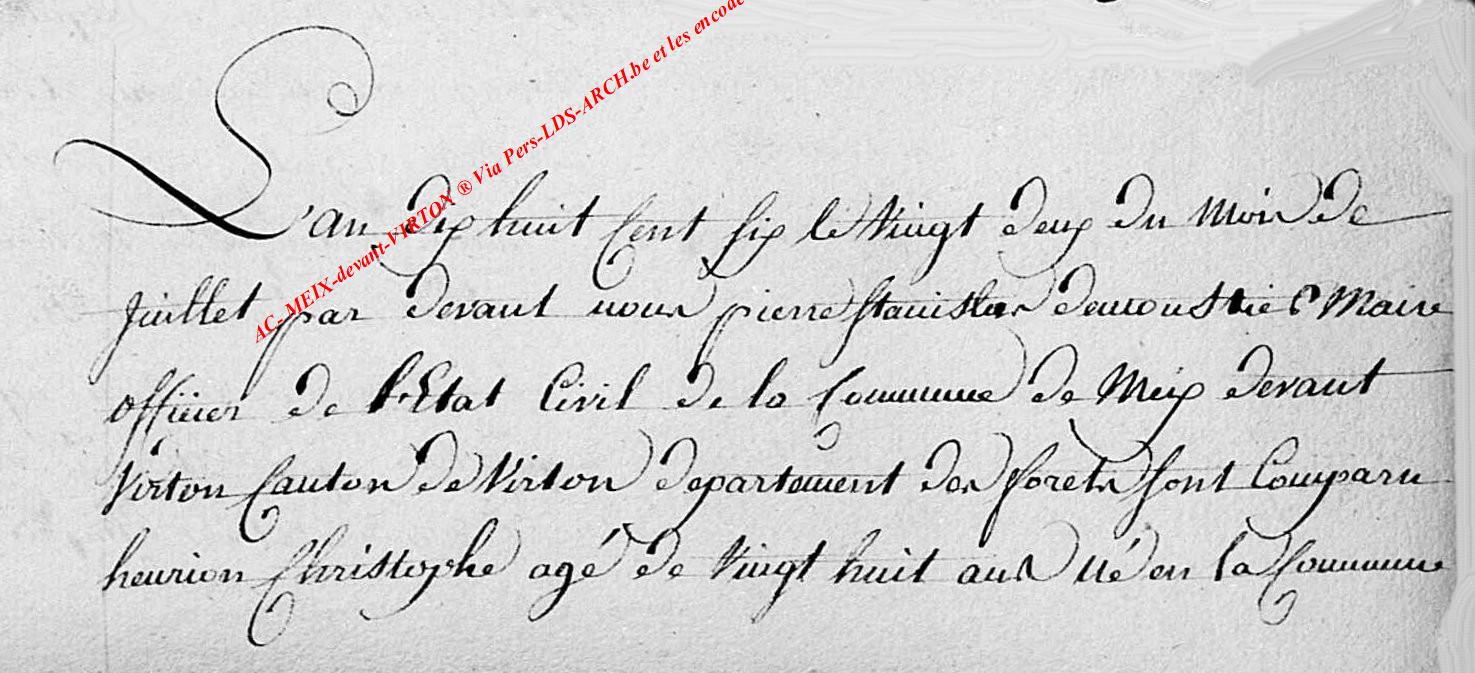 AC- MEIX-devant-VIRTON ® Via Pers-LDS-ARCH.be et les encode
L'an dix huit Cent six le Vingt deux du Mois de
Juillet par devant nous pierre stanislas demoustier Maire
officier de l'Etat Civil de la Commune de Meix devant
Virton Canton de Virton departement des forets sont Comparu
henrion Christophe agé de Vingt huit ans né en la Commune